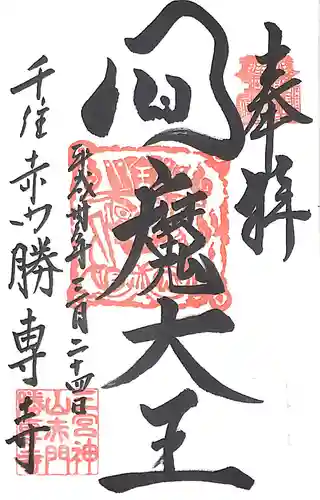 奉拝
閻魔大王
平成卅年三月二十四日
千住赤門勝専寺
三宮神
山赤門
勝専寺